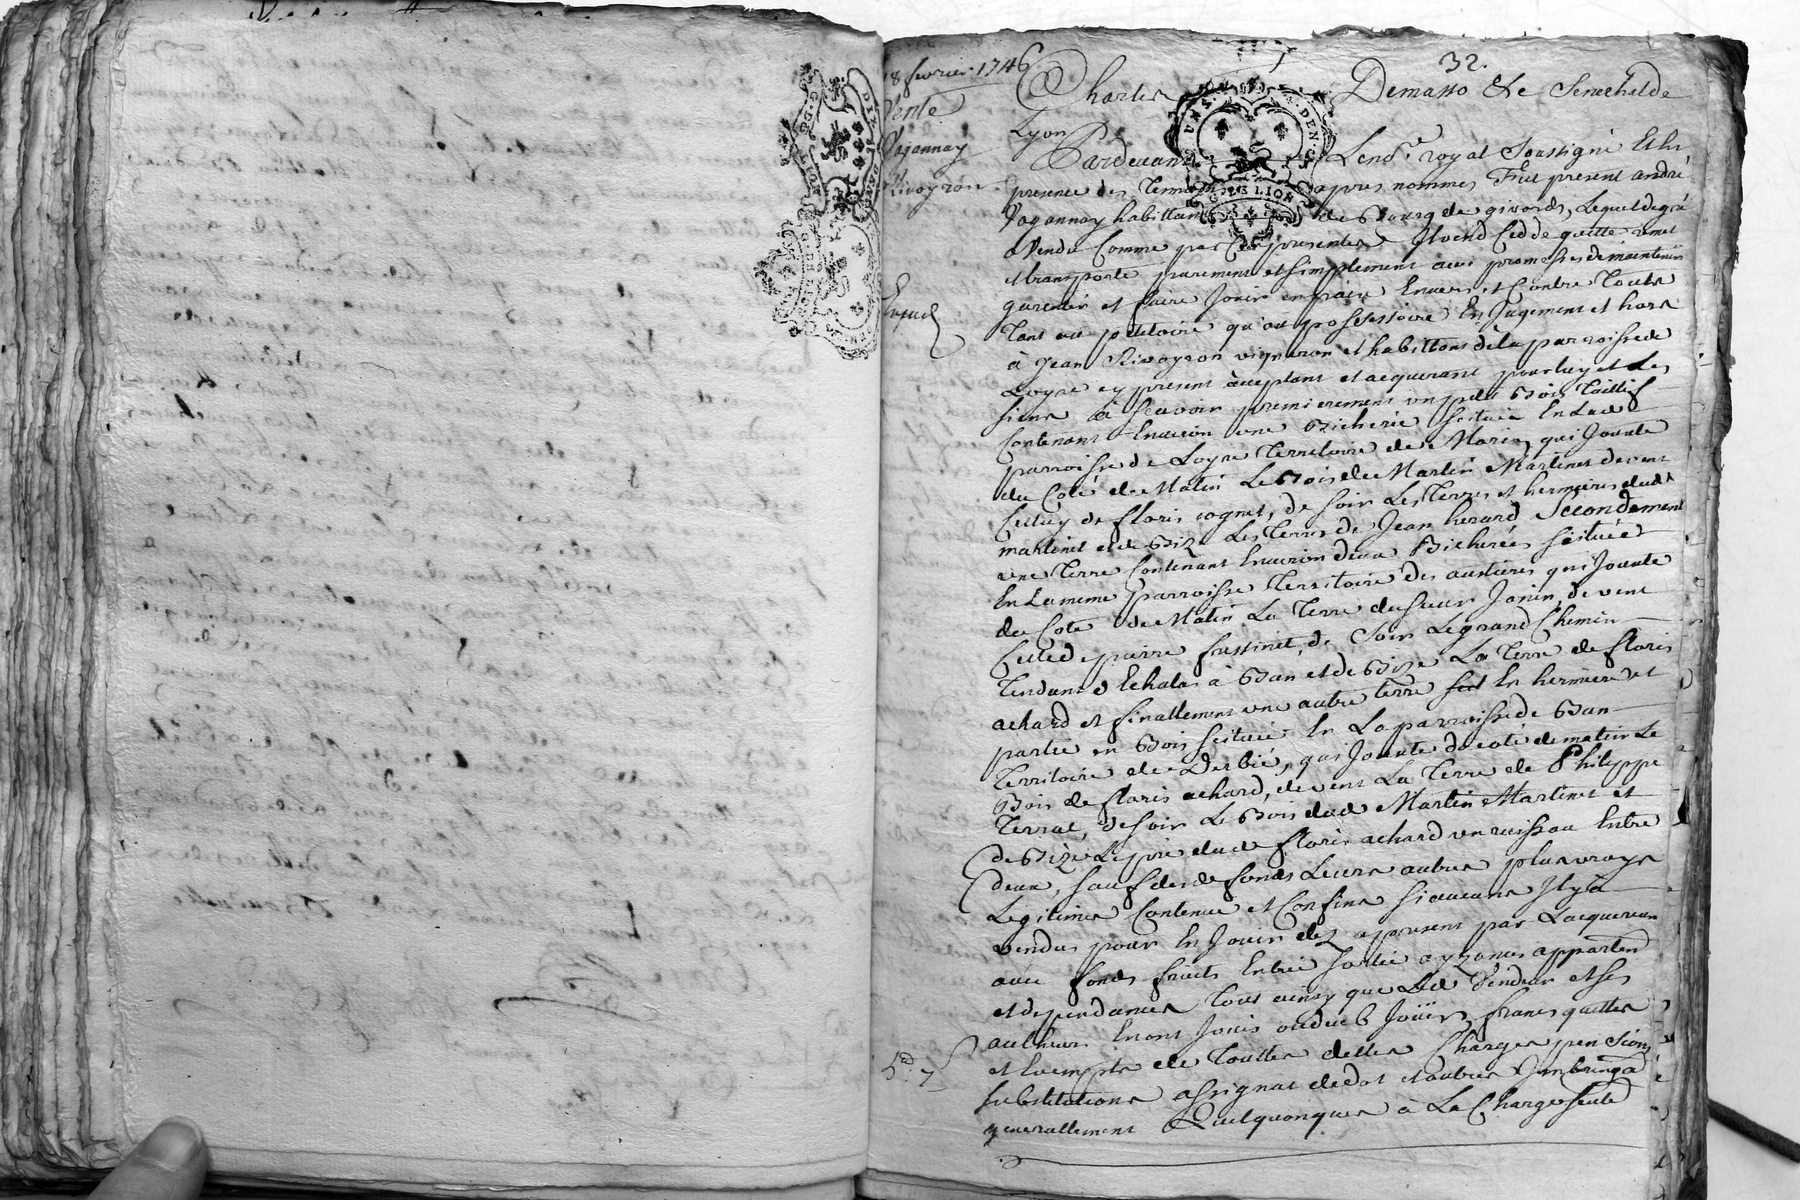 32.
8 fevrier 1746
Vente
Vogannay
Rivoyron
Charles Demasso &c Senechal de
Lyon
Pardevant Le no.re royal Soussigné Et en
presence des Temoins apres nommés Fut present andré
Vogannay habittant de Bourg de givords, Lequel de gré
a Vendu Comme par Ces presentes Il vend Cedde quitte remet
et transporte purement et simplement avec promesses de maintenir
garentir et faire Jouir en paix Envers et Contre Touts
Tant au petitoire qu'au possessoire En Jugement et hors
à Jean Rivoyron vigneron et habittant de la parroisse de
Loyre cy present acceptant et acquerant pour luy et Les
siens à Scavoir premierement un petit Bois Taillif
Contenant Environ une Bicherée Scituée En Lad
parroisse de Loyre Territoire de Marin, qui Jouxte
du Coté de Matin Le Bois de Martin Martinet de vent
Celluy de floris cognet, de soir Les Terres et hermieres dudt
martinet et de Bize Les Terres de Jean herard Secondement
une Terre Contenant Environ deux Bicherées Scituée
En La meme parroisse Territoire des austieres qui Jouxte
du Coté de Matin La Terre du Sieur Jonin, de vent
Celle de pierre frestinet, de Soir Le grand Chemin
Tendant d'Echalas à Ban et de Bize La Terre de floris
achard et finallement une autre terre En hermiere et
partie en Bois Scituée En La parroisse de Ban
Territoire de Derbié, qui Jouxte du coté de matin Le
Bois de floris achard, de vent La Terre de Philippe
Terrat, de soir Le Bois dud Martin Martinet et
de Bize Le pré dud floris achard un ruisseau Entre
deux, sauf desd fonds Leurs autres plus vrays
Legitimes Contenue et Confins si aucuns Il y a
vendus pour En Jouir dez apresent par Lacquereur
avec fonds fruits Entrée sortie ayzances apparten
et dependances Tout ainsy que Led Vendeur et ses
autheurs En ont Jouis ou deub Joüir, francs quittes
et Exempts de Touttes dettes Charges pensions
substitutions assignat de dot et autres
generallement Quelquonques à La Charge seule
5d 7